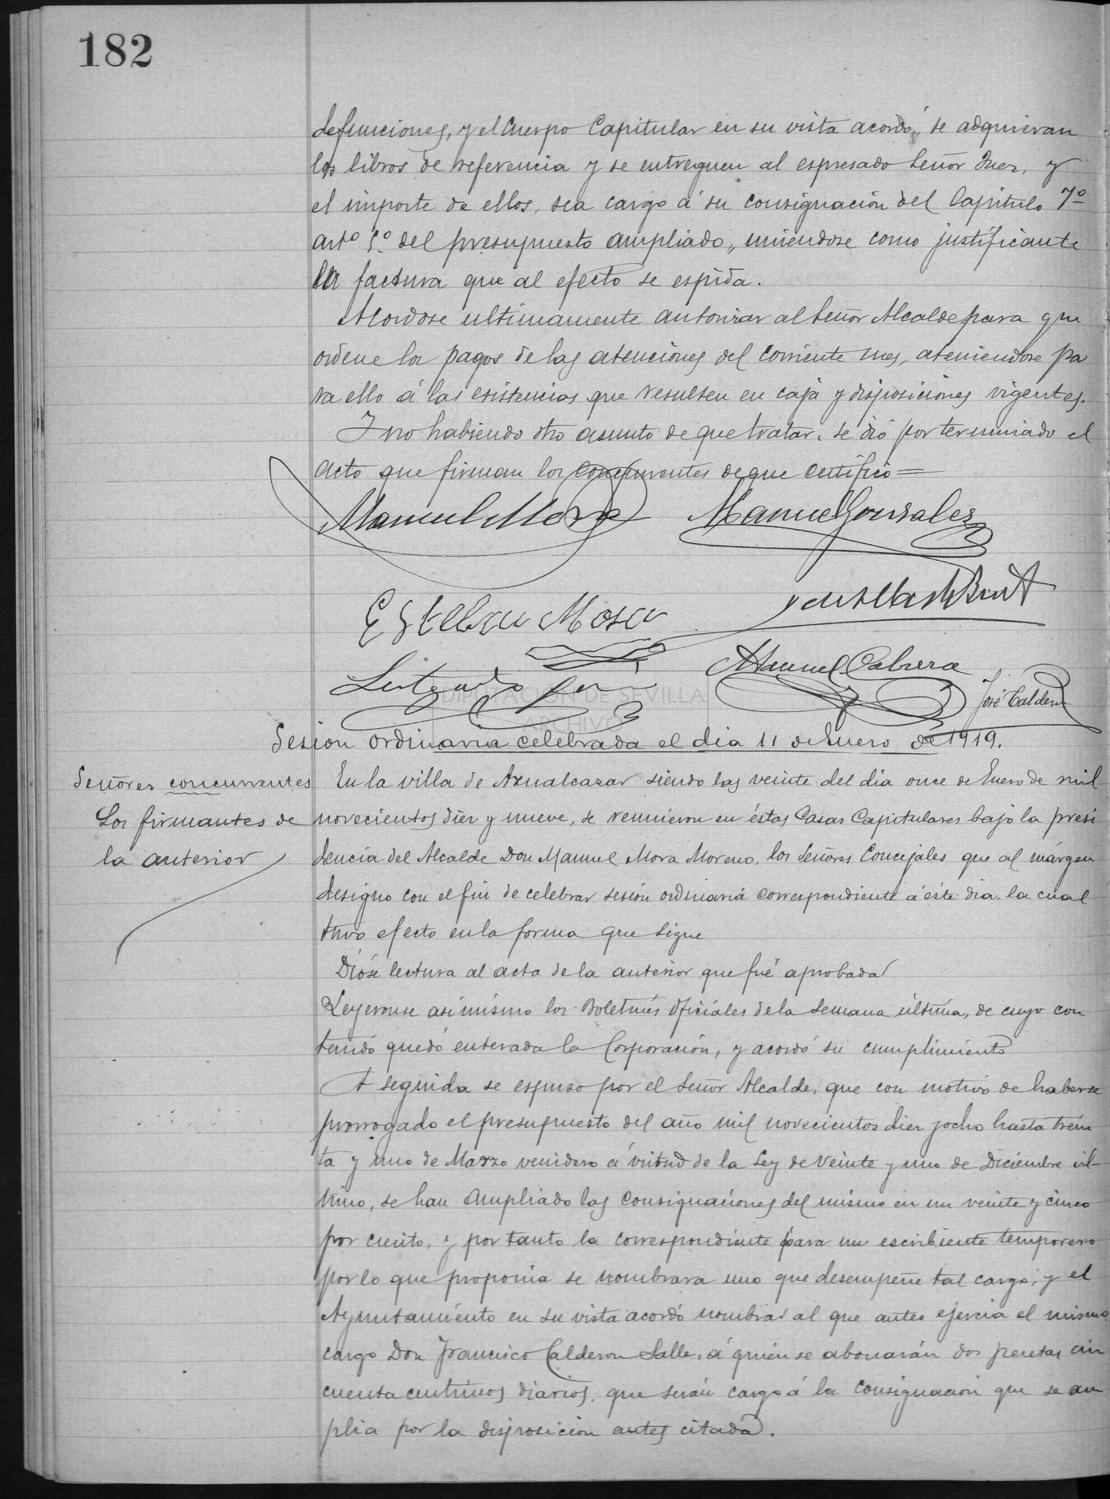 182
defunciones, y el Cuerpo Capitular en su vista acordó, se adquieran
los libros de referencia y se entreguen al espresado Señor Juez, y
el importe de ellos, sea cargo á su consignación del Capitulo 7º
artº 5.º del presupuesto ampliado, uniendose como justificante
la factura que al efecto se espida.
Acordose ultimamente autorizar al Señor Alcalde para que
ordene los pagos de las atenciones del corriente mes, ateniendose pa
ra ello á las esistencias que resulten en caja y disposiciones vigentes.
Y no habiendo otro asunto de que tratar, se dió por terminado el
acto que firman los concurrentes de que certifico =
Manuel Mora Manuel Gonzalez
Esteban Mora
Manuel Cabrera
José Calderon
DIPUTACIÓN DE SEVILLA
ARCHIVO
Sesion ordinaria celebrada el dia 11 de Enero de 1919.
Señores concurrentes
Los firmantes de
la anterior
En la villa de Aznalcazar siendo las veinte del dia once de Enero de mil
novecientos diez y nueve, se reunieron en éstas Casas Capitulares bajo la presi
dencia del Alcalde Don Manuel Mora Moreno, los Señores Concejales que al márgen
designo con el fin de celebrar sesión ordinaria correspondiente á éste dia, la cual
tuvo efecto en la forma que sigue
Dióse lectura al acta de la anterior que fué aprobada
Leyeronse asimismo los Boletines Oficiales de la semana última, de cuyo con
tenido quedó enterada la Corporación, y acordó su cumplimiento
A seguida se espuso por el Señor Alcalde, que con motivo de haberse
prorrogado el presupuesto del año mil novecientos diez y ocho hasta trein
ta y uno de Marzo venidero á virtud de la Ley de veinte y uno de Diciembre úl-
timo, se han ampliado las consignaciones del mismo en un veinte y cinco
por ciento, y por tanto la correspondiente para un escribiente temporero
por lo que proponia se nombrara uno que desempeñe tal cargo, y el
Ayuntamiento en su vista acordó nombrar al que antes ejercia el mismo
cargo Don Francisco Calderon Salle, á quien se abonarán dos pesetas cin
cuenta centimos diarios, que serán cargo á la consignación que se am
plia por la disposición antes citada.